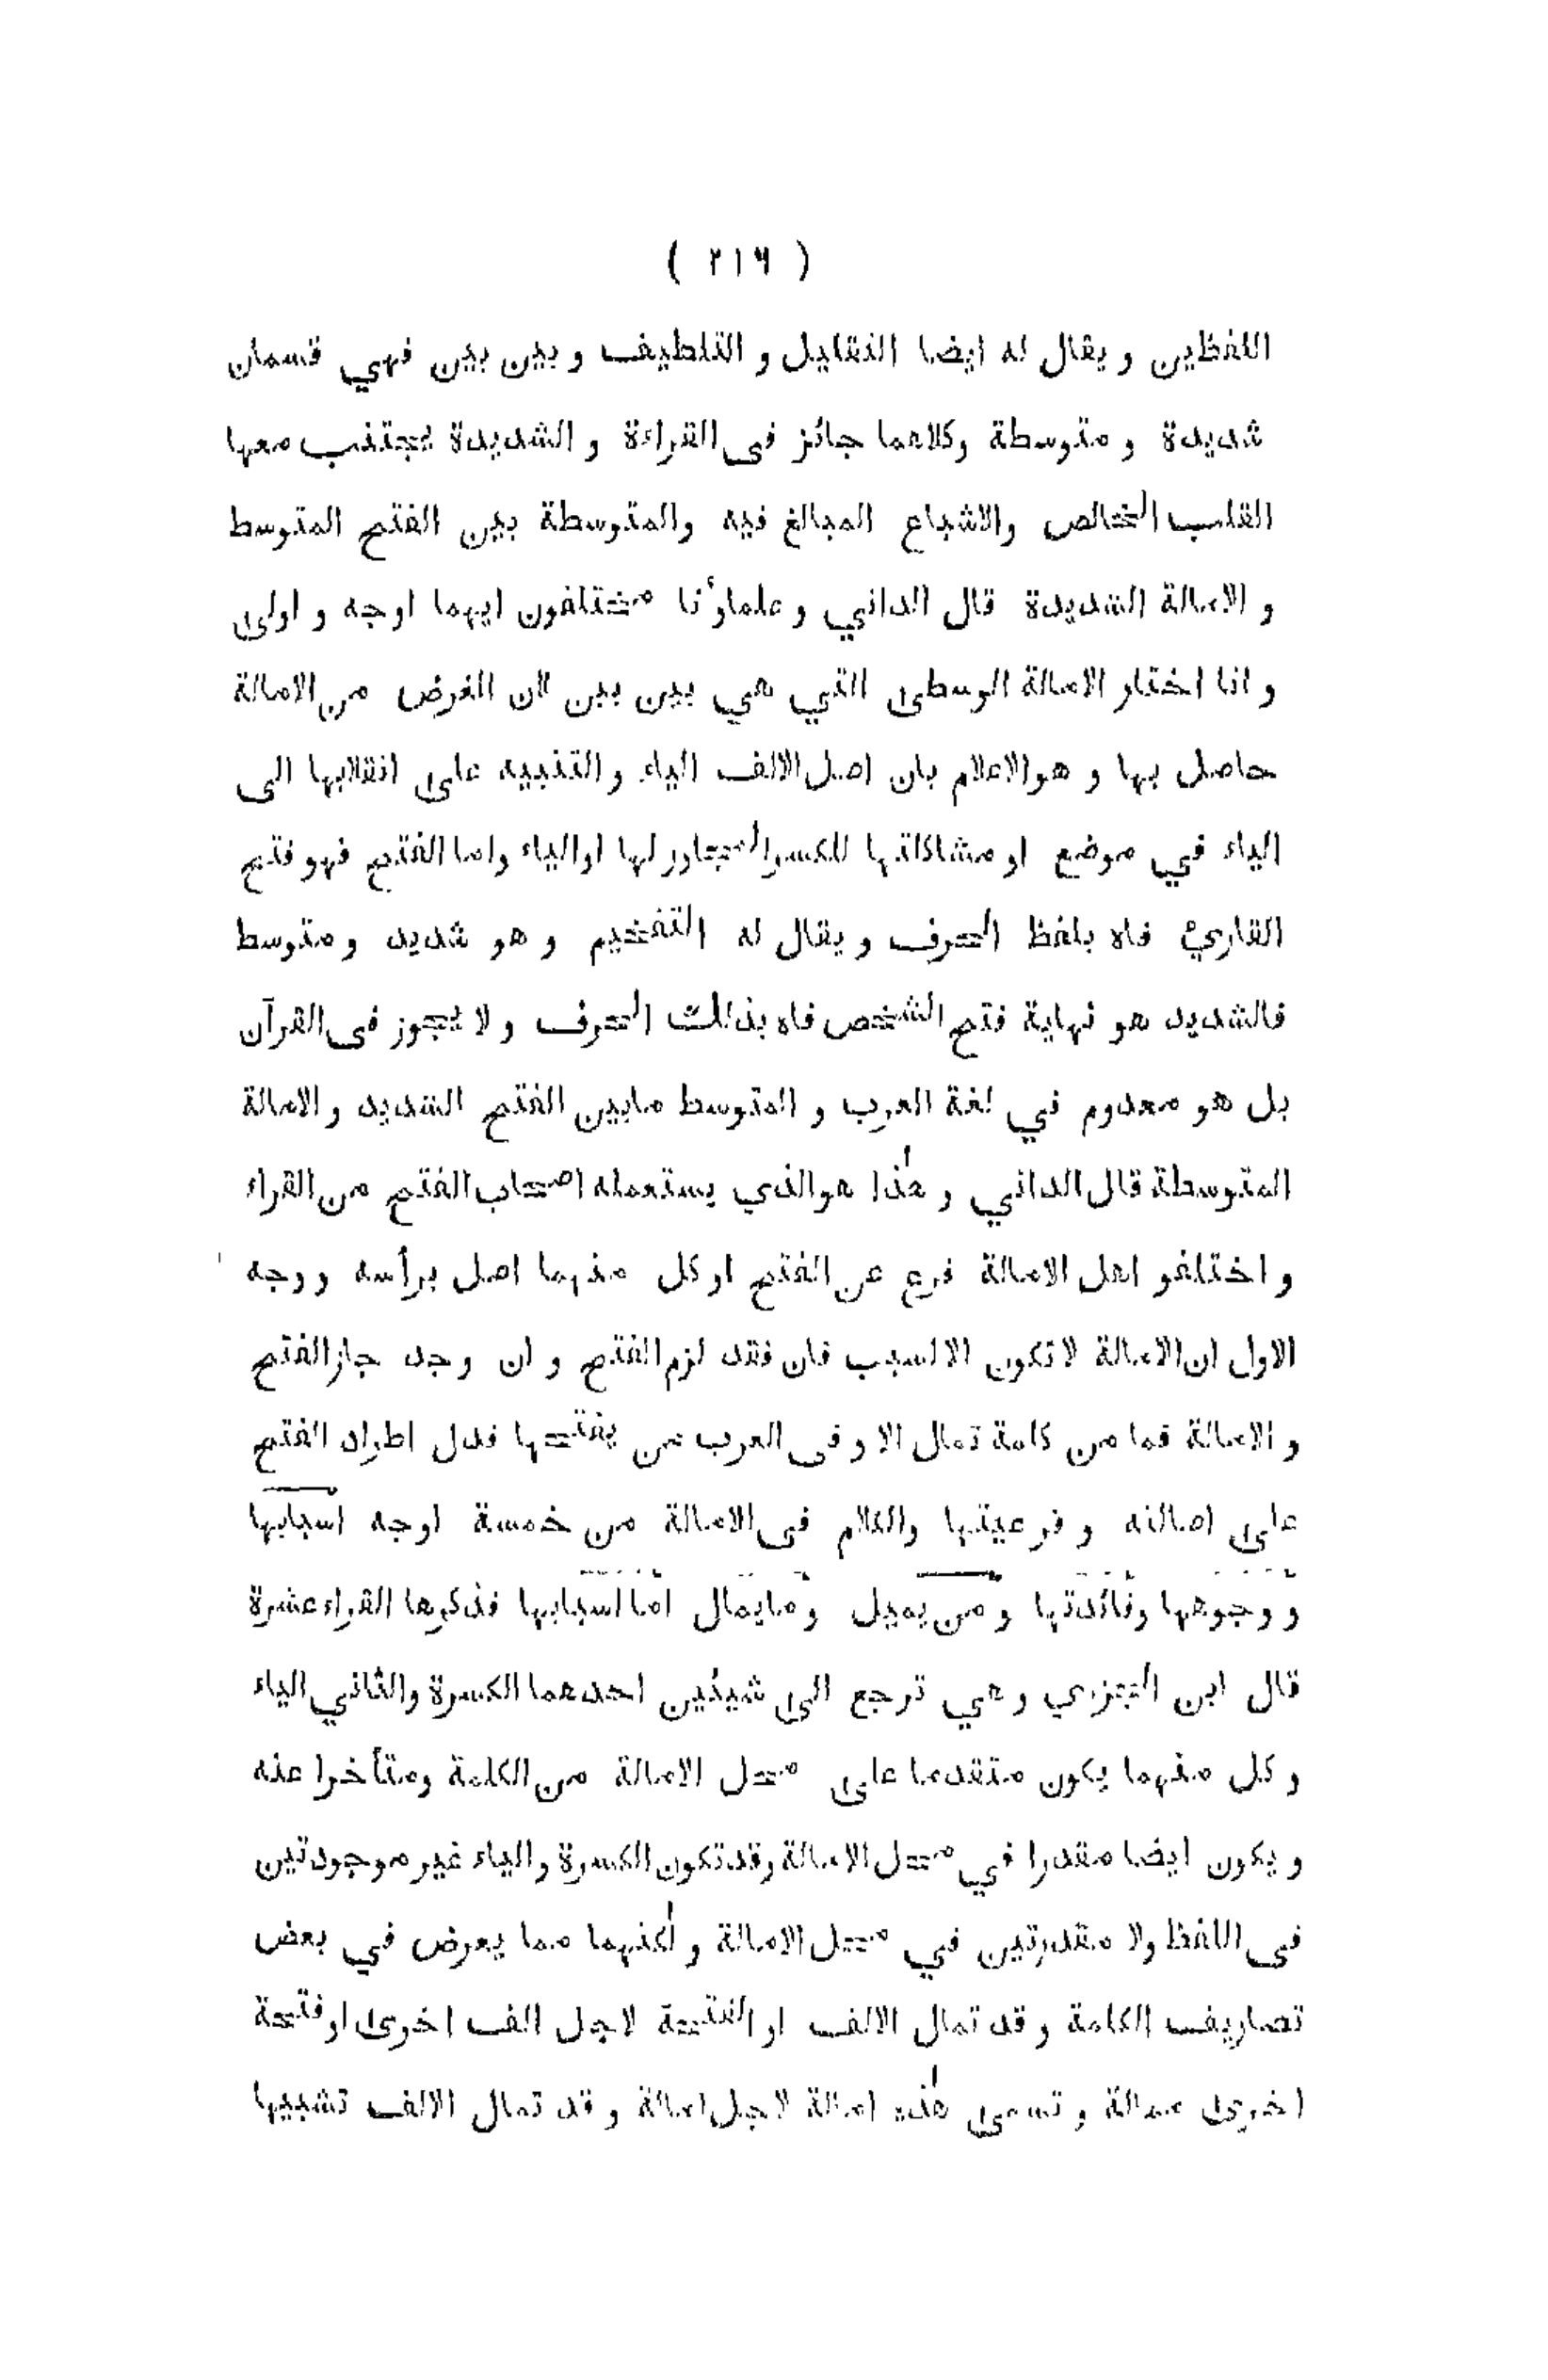 ( ٢١٦ )
اللفظين و يقال له ايضا التقليل و التلطيف و بين بين فهي قسمان
شديدة و متوسطة وكلاهما جائز فى القراءة و الشديدة يجتنب معها
القلب الخالص والاشباع المبالغ فيه والمتوسطة بين الفتح المتوسط
و الامالة الشديدة قال الداني و علماؤنا مختلفون ايهما اوجه و اولى
و انا اختار الامالة الوسطى التي هي بين بين لان الغرض من الامالة
حاصل بها و هو الاعلام بان اصل الالف الياء و التنبيه على انقلابها الى
الياء في موضع او مشاكلتها للكسر المجاور لها او الياء واما الفتح فهو فتح
القاريء فاه بلفظ الحرف و يقال له التفخيم و هو شديد و متوسط
فالشديد هو نهاية فتح الشخص فاه بذلك الحرف و لا يجوز فى القرآن
بل هو معدوم في لغة العرب و المتوسط مابين الفتح الشديد و الامالة
المتوسطة قال الداني و هٰذا هو الذي يستعمله اصحاب الفتح من القراء
و اختلفو اهل الامالة فرع عن الفتح او كل منهما اصل برأسه و وجه
الاول ان الامالة لا تكون الا لسبب فان فقد لزم الفتح و ان وجد جاز الفتح
و الامالة فما من كلمة تمال الا و فى العرب من يفتحها فدل اطراد الفتح
على اصالته و فرعيتها والكلام فى الامالة من خمسة اوجه اسبابها
و وجوهها وفائدتها و من يميل و مايمال اما اسبابها فذكرها القراء عشرة
قال ابن الجزري و هي ترجع الى شيئين احدهما الكسرة والثاني الياء
و كل منهما يكون متقدما على محل الامالة من الكلمة ومتأخرا عنه
و يكون ايضا مقدرا في محل الامالة وقد تكون الكسرة و الياء غير موجودتين
فى اللفظ ولا مقدرتين في محل الامالة و لٰكنهما مما يعرض في بعض
تصاريف الكلمة و قد تمال الالف او الفتحة لاجل الف اخرى او فتحة
اخرى ممالة و تسمى هٰذه امالة لاجل امالة و قد تمال الالف تشبيها